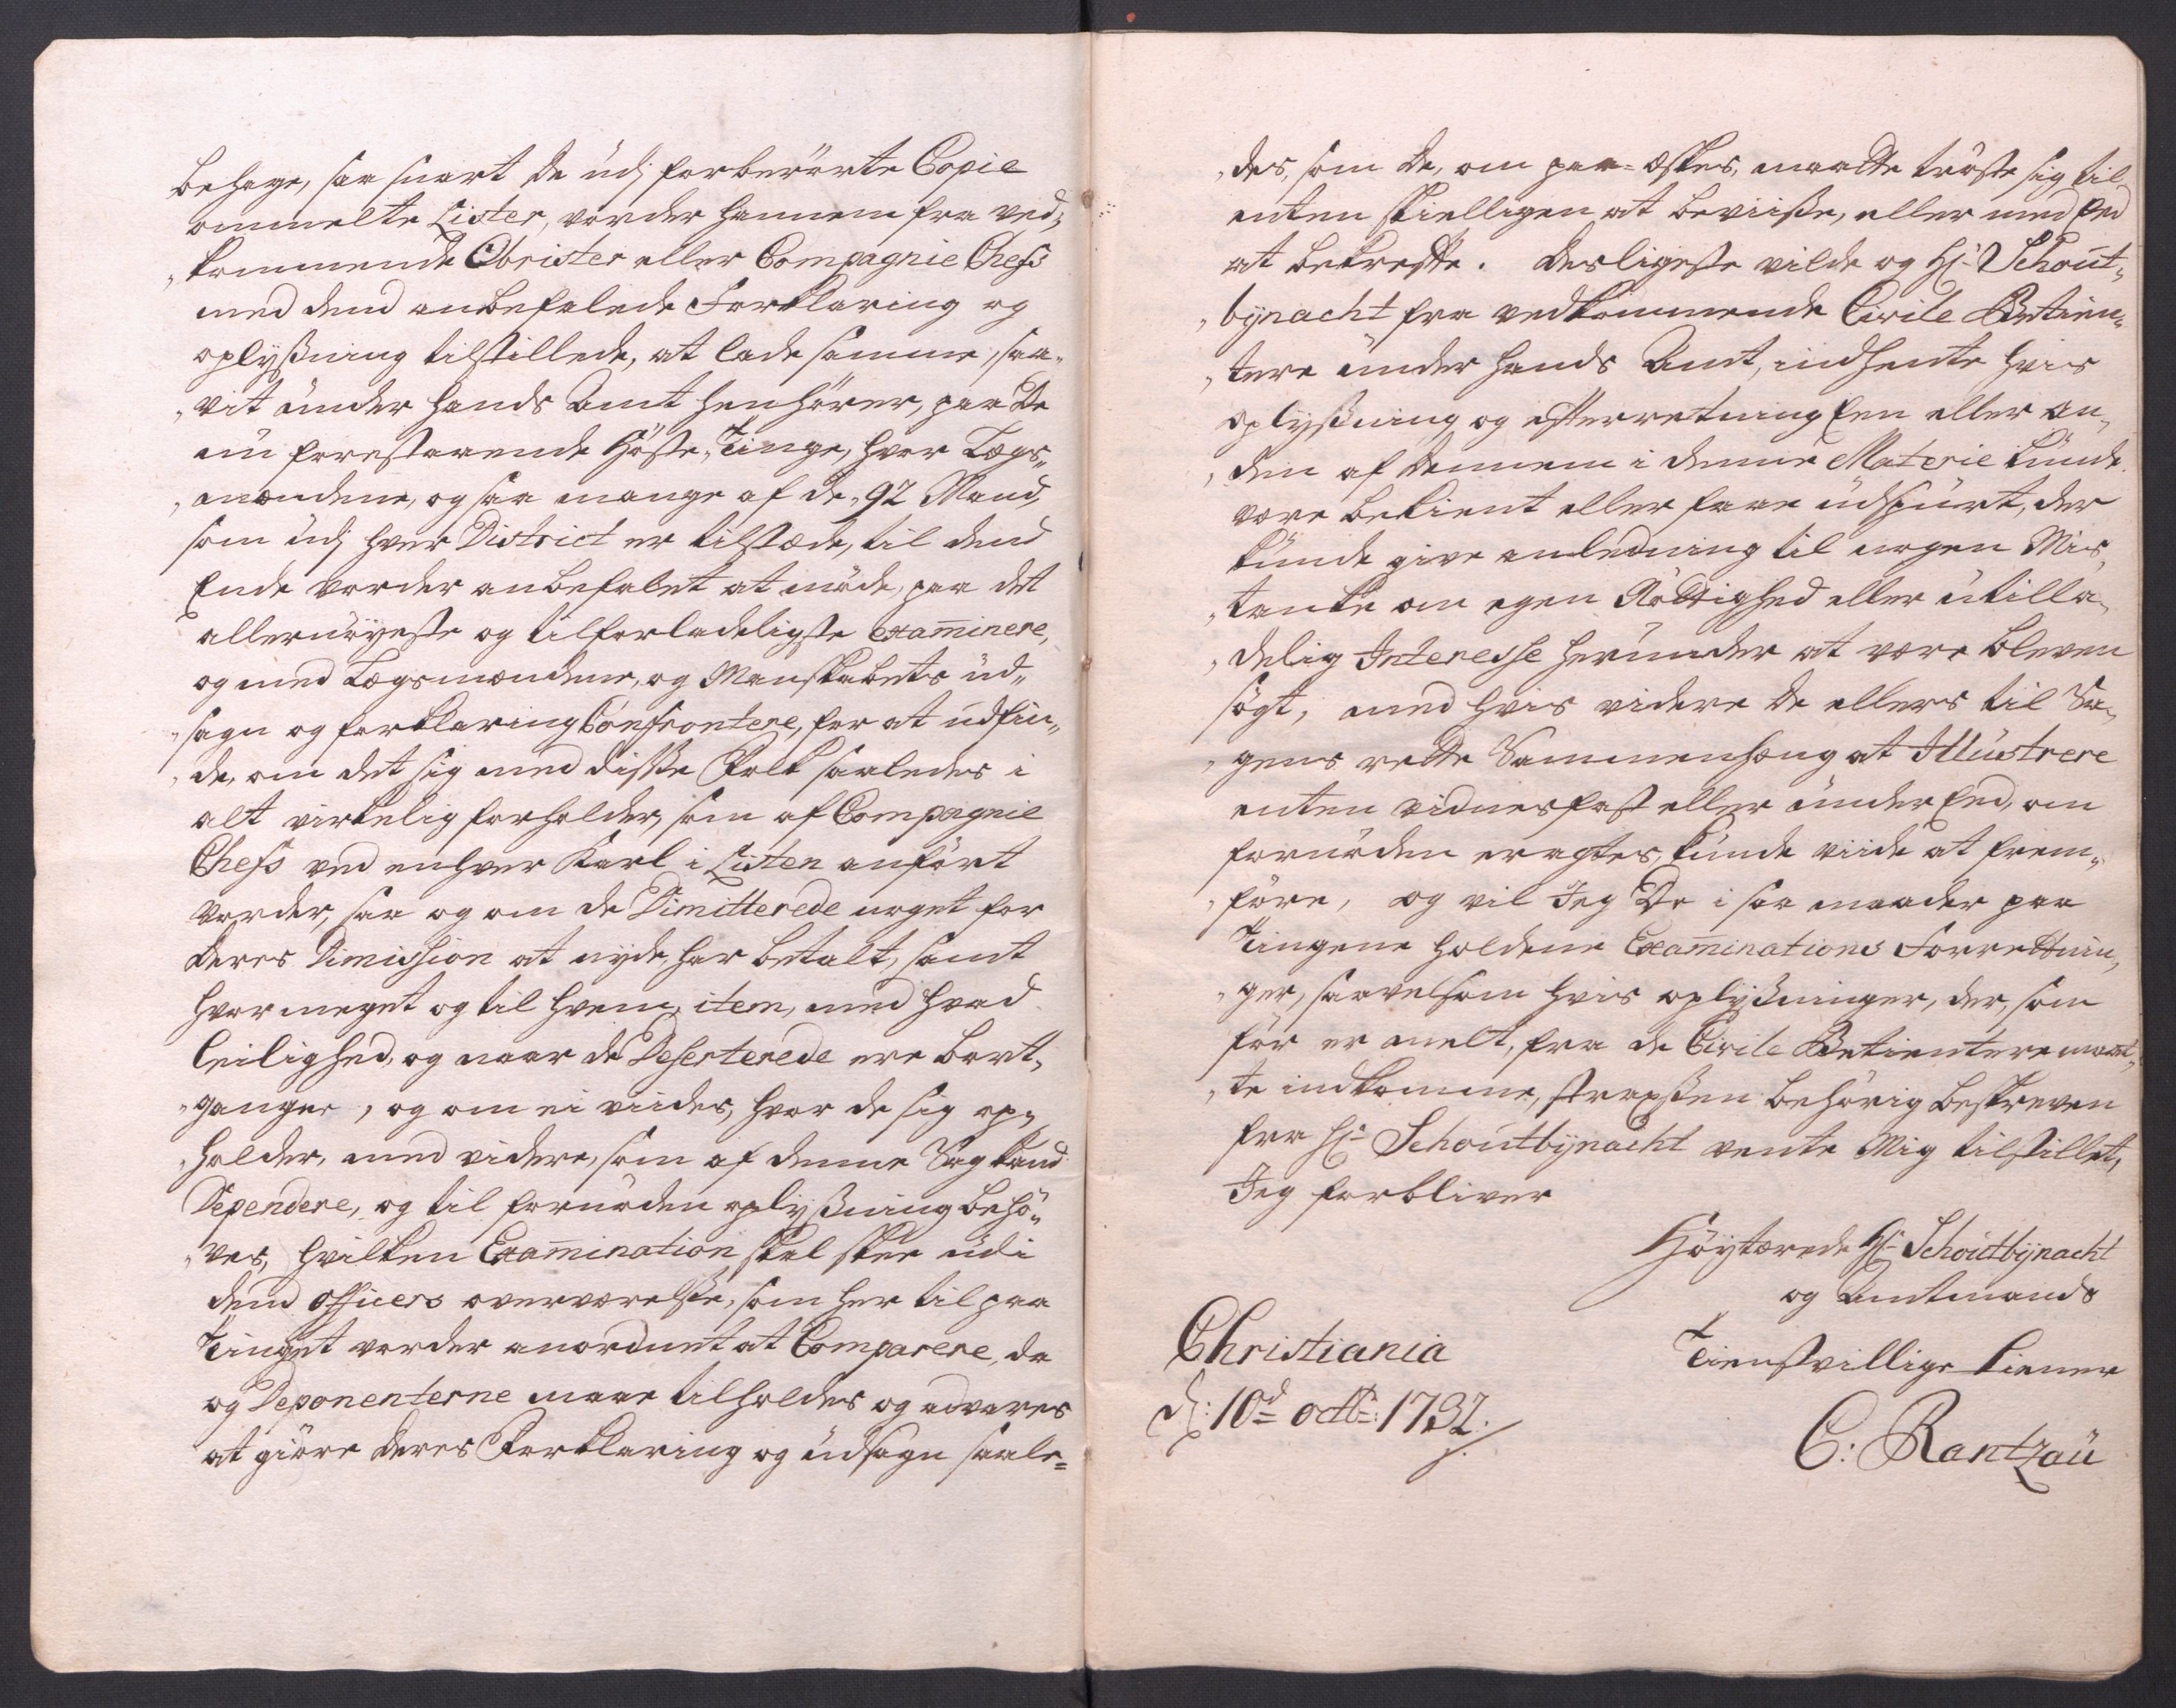 behage, saa snart de udj forberörte Copie
ommelte Lister, vorder hannem fra ved„
„kommende Obrister eller Compagnie Chefs
med dend anbefalede Forklaring og
oplysning tilstillede, at lade samme, saa„
„vit under hands Amt henhörer, paa De
nu forestaaende Höste-Tinge, hvor Lægs„
„mændene, og saa mange af de 97 Mand,
som udj hver District er tilstæde, til dend
Ende vorder anbefalet at möde, paa det
allernöyeste og tilforladeligste examinere,
og med Lægsmændene, og Manskabets ud„
„sagn og forklaring Confrontere, for at udfin„
„de, om det sig med disse Folk saaledes i
alt virkelig forholder, som af Compagnie
Chefs ved enhver Karl i Listen anfört
vorder, saa og om de Dimitterede noget for
deres Dimission at nyde, har betalt, samt
hvor meget og til hvem, item, med hvad
leilighed, og naar de Deserterede ere bort„
„gangne, og om ei viides, hvor de sig op„
„holder, med videre, som af denne Sag kand
Dependere, og til fornöden oplysning behö„
„ves, hvilken Examination skal skee udi
dend officers overværelse, som her til paa
Tinget vorder anordnet at Comparere, da
og Deponenterne maae tilholdes og advares
at giöre deres Forklaring og udsagn saale=
„des, som de, om paa-æskes, maatte tröste sig til
enten skielligen at beviise, eller med Eed
at bekræfte. Desligeste vilde og Hr Schout„
„bynacht fra vedkommende Civile Betien„
„tere under hands Amt, indhente hvis
oplysning og efterretning Een eller an„
„den af dennem i denne Materie kunde
være bekient eller faae udspurt, der
kunde give anledning til nogen Mis„
„tanke om egen Nöttighed eller utilla„
„delig Interesse herunder at være bleven
sögt, med hvis videre de ellers til Sa„
„gens rette Sammenhæng at Illustrere
enten vidnesfast eller under Eed, om
fornöden eragtes, kunde viide at frem„
„före, og vil Jeg De i saa maader paa
Tingene holdene Examinations Forretnin„
„ger, saavelsom hvis oplysninger, der, som
för er melt, fra de Civile Betientere maat„
„te indkomme, strapsen behörig beskreven
fra Hr Schoutbynacht vente Mig tilstillet,
Jeg forbliver
Höytærede Hr Schoutbynacht
og Amtmands
Christiania
Tienstvillige tiener
d: 10d octbr: 1732.
C: Rantzau